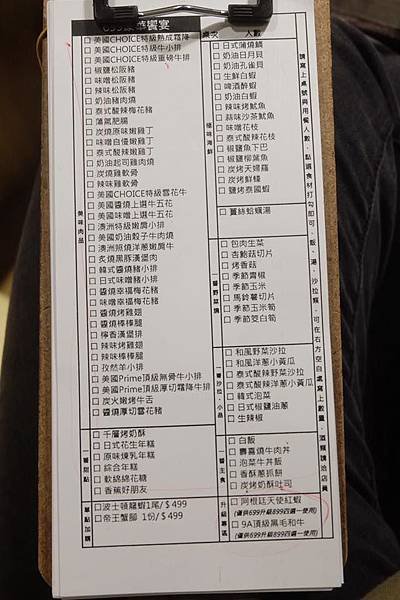 699 饗宴
桌次 人數
□美國CHOICE特級熟成霜降
□美國CHOICE特級牛小排
□美國CHOICE特級重磅牛排
□椒鹽松阪豬
□味噌松阪豬
□辣味松阪豬
□奶油豬肉燒
□泰式酸辣梅花豬
□薄氣肥腸
□炭燒原味嫩雞丁
□味噌自優嫩雞丁
□泰式酸辣嫩雞丁
□奶油起司雞肉燒
□炭燒雞軟骨
□辣味雞軟骨
□美國CHOICE特級雪花牛
□美國醬燒上選牛五花
□美國味噌上選牛五花
□澳洲特級嫩肩小排
□美國奶油骰子牛肉燒
□澳洲照燒洋蔥嫩肩牛
□炙燒黑豚漢堡肉
□韓式醬燒豬小排
□日式味噌豬小排
□醬燒幸福梅花豬
□味噌幸福梅花豬
□醬燒烤雞翅
□醬燒棒棒腿
□檸香漢堡排
□辣味烤雞翅
□辣味棒棒腿
□孜然羊小排
□美國Prime頂級無骨牛小排
□美國Prime頂級厚切霜降牛排
□炭火嫩烤牛舌
□醬燒厚切雪花豬
美味肉品
□千層烤奶酥
□日式花生年糕
□原味煉乳年糕
□綜合年糕
□軟綿綿花糖
□香蕉好朋友
一番甜點
□波士頓龍蝦1尾/$499
□帝王蟹腳 1份/$499
單點加購
□日式蒲燒鯛
□奶油日月貝
□奶油孔雀貝
□生鮮白蝦
□啤酒醉蝦
□奶油白蝦
□辣味烤魷魚
□蒜味沙茶魷魚
□味噌花枝
□泰式酸辣花枝
□椒鹽魚下巴
□椒鹽柳葉魚
□炭烤天婦羅
□炭烤鮮蠔
□鹽烤泰國蝦
極味海鮮
□薑絲蛤蠣湯
□包肉生菜
□杏鮑菇切片
□烤香菇
□季節青椒
□季節玉米
□馬鈴薯切片
□季節玉米筍
□季節筊白筍
一番野菜燒
□和風野菜沙拉
□和風洋蔥小黃瓜
□泰式酸辣野菜沙拉
□泰式酸辣洋蔥小黃瓜
□韓式泡菜
□日式椒鹽油蔥
□生辣椒
一番沙拉、小品
□白飯
□壽喜燒牛肉丼
□泡菜牛丼飯
□香酥蔥抓餅
□炭烤奶酥吐司
一番主食
□阿根廷天使紅蝦
(僅供699升級899四選一使用)
□9A頂級黑毛和牛
(僅供699升級899四選一使用)
升級專區
請寫上桌號與用餐人數，點選食材打勾即可，飯、湯、沙拉類，可在右方空白處寫上數量，酒類請洽店員